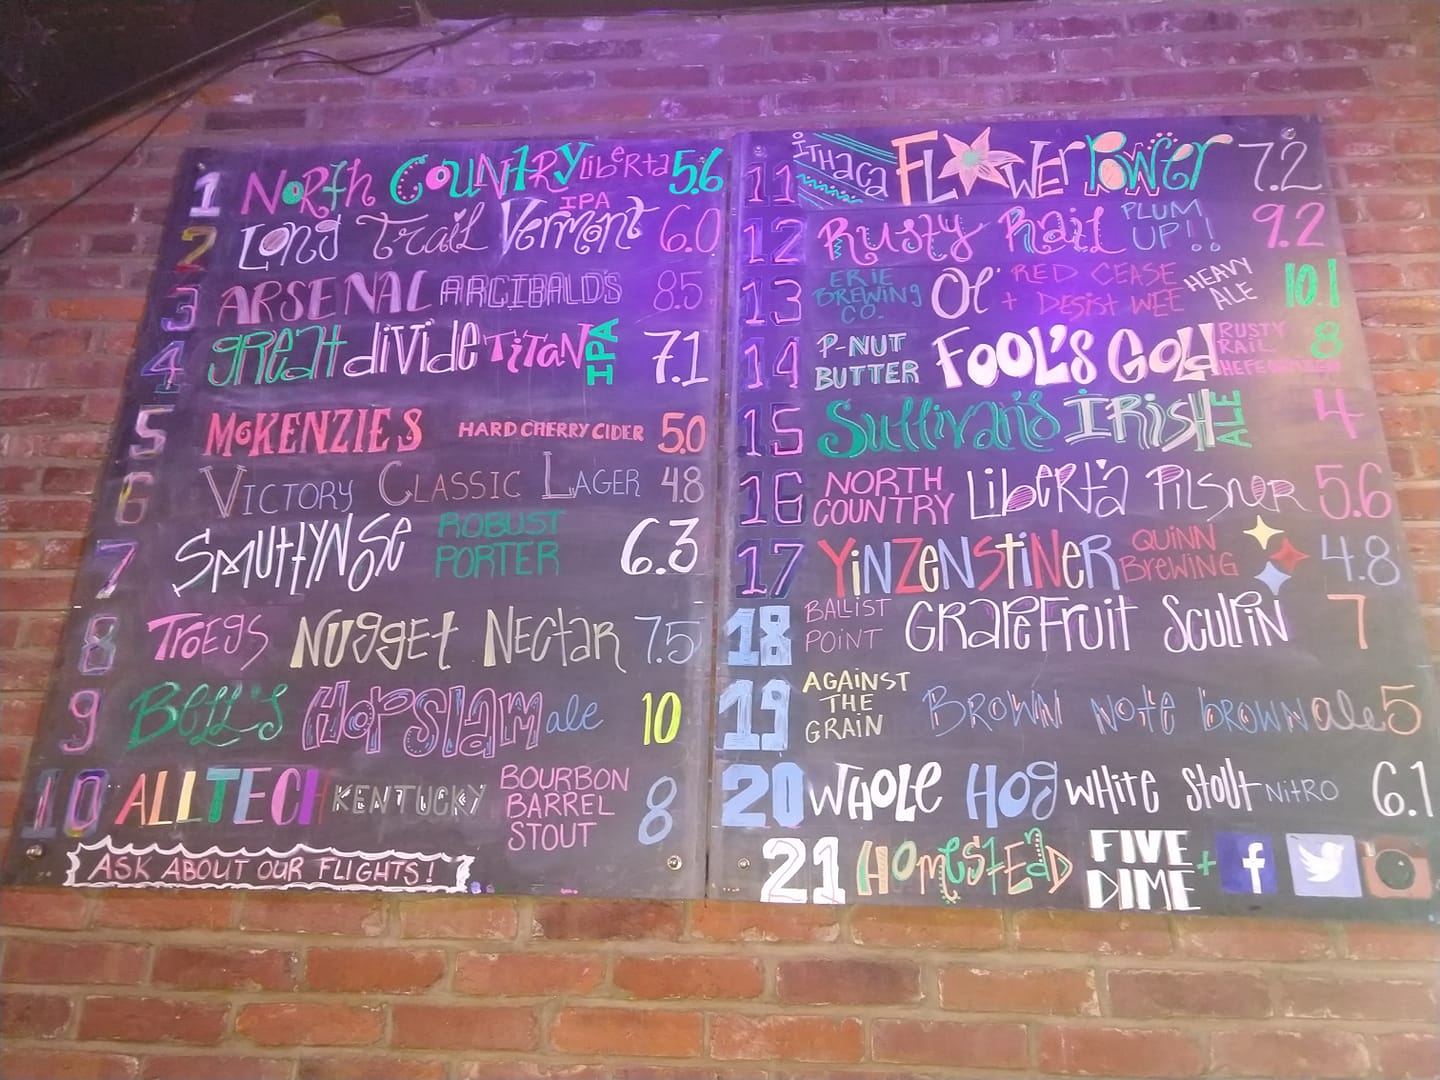 1 NORTH COUNTRY Liberta 5.6
2 LONG Trail Vermont IPA 6.0
3 ARSENAL ARCIBALD'S 8.5
4 GREAT diViDe TiTaN IPA 7.1
5 McKENZIE'S HARD CHERRY CIDER 5.0
6 VICTORY CLASSIC LAGER 4.8
7 SMUTTYNOSE ROBUST PORTER 6.3
8 TROEGS NUGGET NECTAR 7.5
9 BELL'S HOPSLAM ale 10
10 ALLTECH KENTUCKY BOURBON BARREL STOUT 8
ASK ABOUT OUR FLIGHTS!
11 iTHACA FLOWER POWER 7.2
12 Rusty Rail PLUM UP!! 9.2
13 ERIE BREWING CO. Ol' RED CEASE + DESIST WEE HEAVY ALE 10.1
14 P-NUT BUTTER FOOL'S GOLD RUSTY RAIL 8
15 Sullivan's IRISH ALE 4
16 NORTH COUNTRY LIBERTA PILSNER 5.6
17 YiNZENSTiNER QUINN BREWING 4.8
18 BALLIST POINT GRAPEFRUIT SCULPIN 7
19 AGAINST THE GRAIN BROWN NOTE BROWN ale 5
20 WHOLE HOG WHITE STOUT NITRO 6.1
21 HOMESTEAD FIVE DIME + f